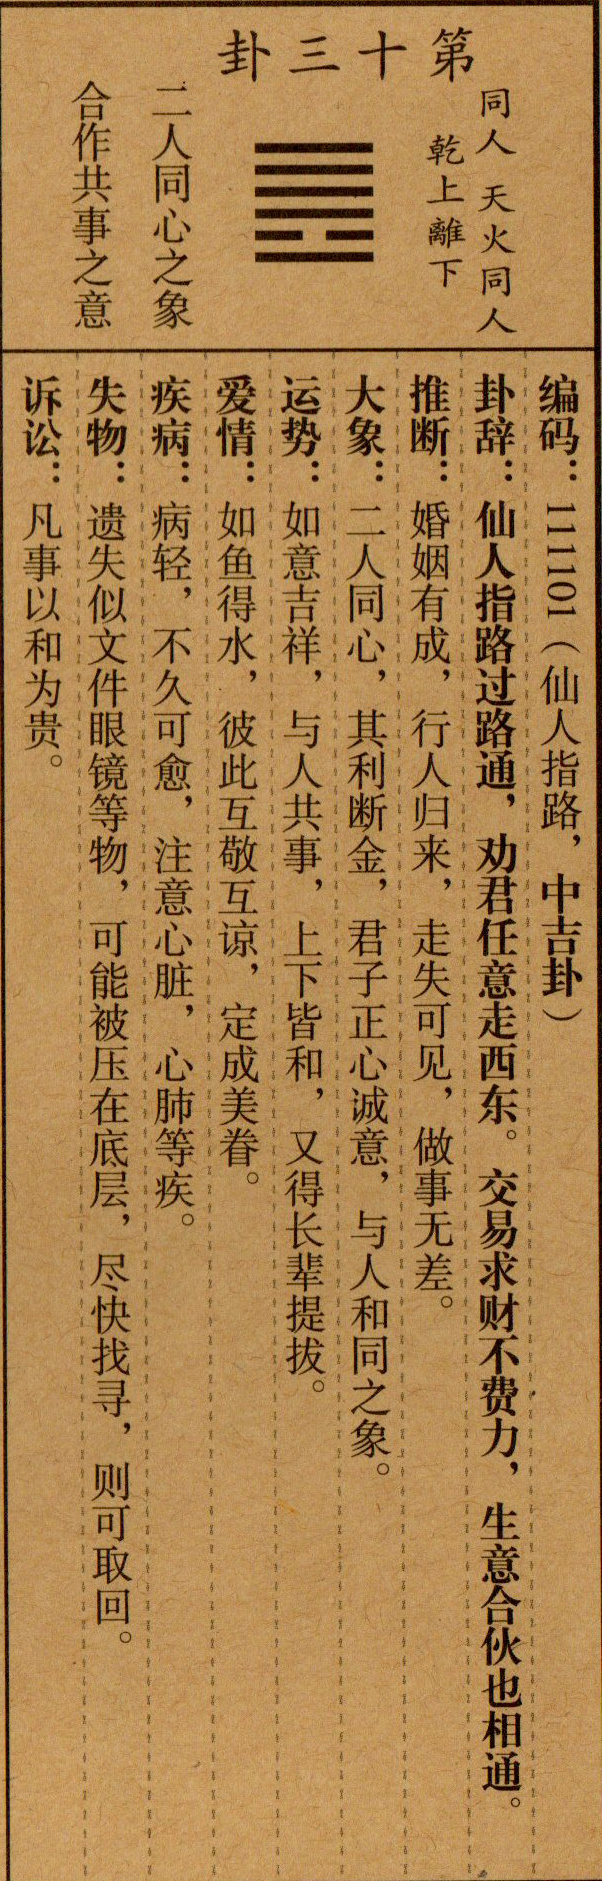 第十三卦
同人 天火同人
乾上離下
二人同心之象
合作共事之意
编码：111101（仙人指路，中吉卦）
卦辞：仙人指路过路通，劝君任意走西东。交易求财不费力，生意合伙也相通。
推断：婚姻有成，行人归来，走失可见，做事无差。
大象：二人同心，其利断金，君子正心诚意，与人和同之象。
运势：如意吉祥，与人共事，上下皆和，又得长辈提拔。
爱情：如鱼得水，彼此互敬互谅，定成美眷。
疾病：病轻，不久可愈，注意心脏，心肺等疾。
失物：遗失似文件眼镜等物，可能被压在底层，尽快找寻，则可取回。
诉讼：凡事以和为贵。